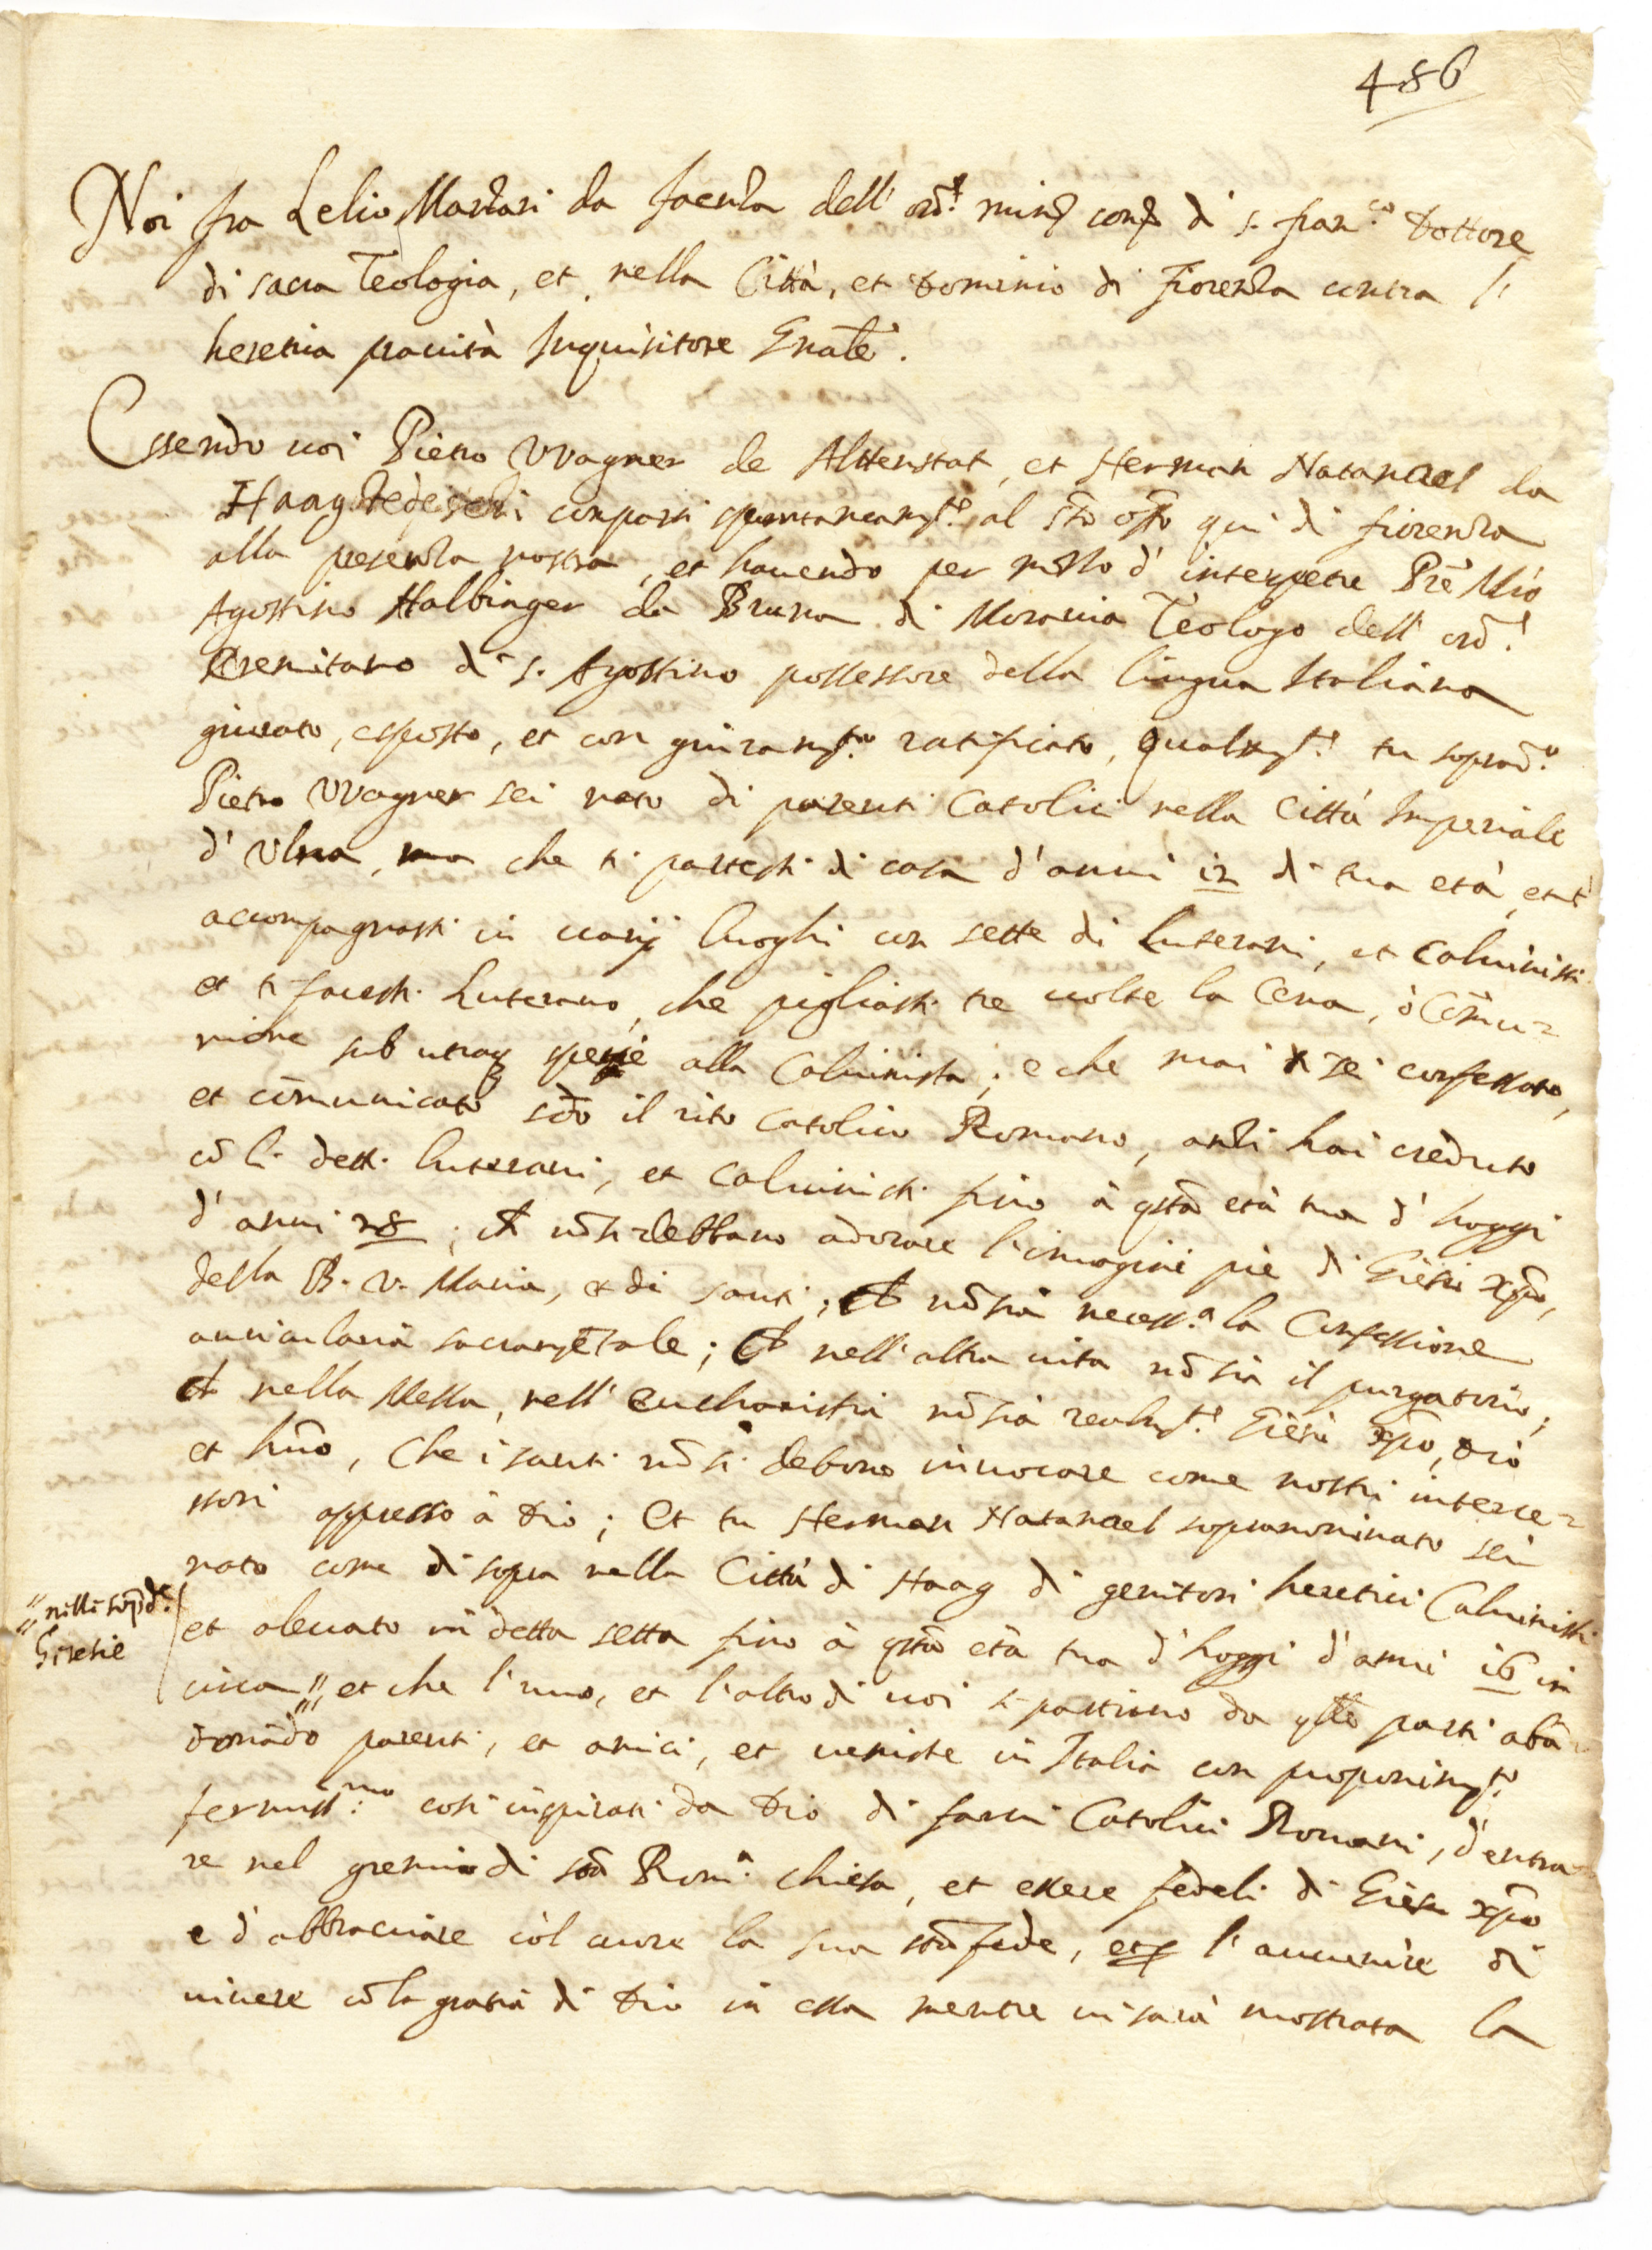 486
Noi fra Lelio Marzari da Faenza dell' ord.e min. con. di s. fran.co Dottore
di sacra Teologia, et nella Città, et Dominio di Fiorenza contra l'
heretica prauità Inquisitore Gnãle.
Essendo uoi Pietro VVagner de Altenstat, et Herman Natanael da
Haag Tedeschi comparsi spontaneam.te al S.to off.o qui di fiorenza
alla presenza nostra, et hauendo per mezzo d' interpetre Prẽ Mro
Agostino Halbinger da Bruna di Morauia Teologo dell' ord.e
Eremitano di s. Agostino possessore della lingua Italiana
giurato, esposto, et con giuram.to ratificato, qualm.te tu soprad.o
Pietro VVagner sei nato di parenti Catolici nella Città Imperiale
d' Ulma, ma che ti partesti di casa d' anni 12 di tua età, et t'
accompagnasti in uarij luoghi con sette di Luterani, et Caluinisti
et ti facesti Luterano, che pigliasti tre uolte la Cena, ò Cõmu=
nione sub utraq specie alla Caluinista; e che mai ti sei confessato,
et cõmunicato scd̃o il rito Catolico Romano, anzi hai creduto
cõ li detti luterani, et Caluinisti fino à q̃sta età tua d' hoggi
d' anni 28; Ch nõ si debbano adorare l' imagini pie di Giesù xp̃o,
della B. V. Maria, et di santi; Ch nõ sia necess.a la Confessione
auriculario sacramẽtale; Ch nell' altra uita nõ sia il purgatorio;
Ch nella Messa, nell' Eucharistia nõ sia realm.te Giesù xp̃o, Dio
et huõ, Che i santi nõ si debono inuocare come nostri interce=
ssori appresso à Dio; Et tu Herman Natanael sopranominato sei
nato come di sopra nella Città di Haag di genitori heretici Caluinisti
et aleuato in detta setta fino à q̃sta età tua d' hoggi d' anni 16 in
"nelle sop.de
"Heresie
circa", et che l' uno, et l' altro di uoi si partirno da q̃lle parti abã=
donãdo parenti, et amici, et ueniste in Italia con proponim.to
fermiss.mo così inspirati da Dio di farui Catolici Romani, d' entra=
re nel gremio di s.ta Rom.a Chiesa, et essere fedeli di Giesu xp̃o
e d' abbracciare col cuore la sua s.ta fede, et p l' auuenire di
uiuere cõ la gratia di Dio in essa mentre ui sarà mostrata la